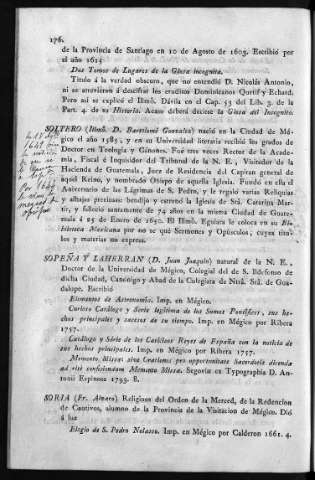 176.
de la Provincia de Santiago en 10 de Agosto de 1603. Escribió por
el año 1614
Dos Tomos de Lugares de la Glosa incognita.
Titulo á la verdad obscuro, que no entendió D. Nicolás Antonio,
ni se atrevieron á descifrar los eruditos Dominicanos Quetif y Echard.
Pero asi se explicó el Illmô. Dávila en el Cap. 53 del Lib. 3. de la
Part. 4 de su Historia. Acaso deberá decirse la Glosa del Incognito.
SOLTERO (Illmô. D. Bartolomé Gonzalez) nació en la Ciudad de Mé-
gico el año 1585, y en su Universidad literaria recibió los grados de
Doctor en Teología y Cánones. Fué tres veces Rector de la Acade-
mia, Fiscal é Inquisidor del Tribunal de la N. E., Visitador de la
Hacienda de Guatemala, Juez de Residencia del Capitan general de
aquel Reino, y nombrado Obispo de aquella Iglesia. Fundó en ella el
Aniversario de las Lágrimas de S. Pedro, y le regaló varias Reliquias
y alhajas preciosas: bendijo y estrenó la Iglesia de Stâ. Catarina Mar-
tir, y falleció santamente de 74 años en la misma Ciudad de Guate-
mala á 25 de Enero de 1650. El Illmô. Eguiara le coloca en su Bi-
blioteca Mexicana por no se qué Sermones y Opúsculos, cuyos titu-
los y materias no expresa.
SOPEÑA Y LAHERRAN (D. Juan Joaquin) natural de la N. E.,
Doctor de la Universidad de Mégico, Colegial del de S. Ildefonso de
dicha Ciudad, Canónigo y Abad de la Colegiata de Ntrâ. Srâ. de Gua-
dalupe. Escribió
Elementos de Astronomía. Imp. en Mégico.
Curioso Catálogo y Serie legítima de los Sumos Pontífices, sus he-
chos principales y sucesos de su tiempo. Imp. en Mégico por Ribera
1757.
Catálogo y Série de los Católicos Reyes de España con la noticia de
sus hechos principales. Imp. en Mégico por Ribera 1757.
Memento, Missæ: sive Orationes pro opportunitate Sacerdotis dicenda
ad ritè conficiendum Memento Missa. Segoviæ ex Typographia D. An-
tonii Espinosa 1793. 8.
SORIA (Fr. Alvaro) Religioso del Orden de la Merced, de la Redencion
de Cautivos, alumno de la Provincia de la Visitacion de Mégico. Dió
á luz
Elogio de S. Pedro Nolasco. Imp. en Mégico por Calderon 1661. 4.